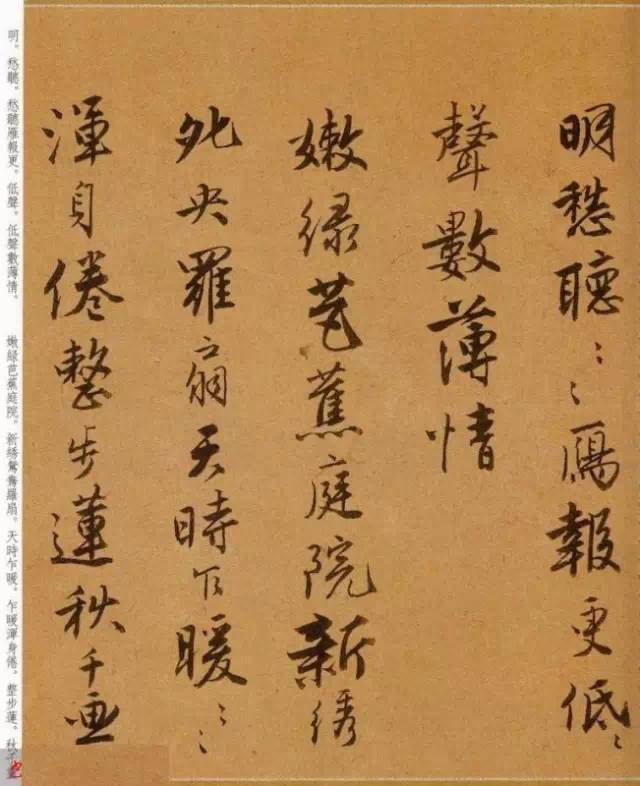 明愁聽〻〻鴈報更低〻
聲數薄情
嫩绿芭蕉庭院新绣
夗央羅扇天時乍暖〻〻
渾身倦整步蓮秋千画
明。愁聽。愁聽雁報更。低聲。低聲數薄情。　嫩緑芭蕉庭院。新綉鴛鴦羅扇。天時乍暖。乍暖渾身倦。整步蓮。秋千